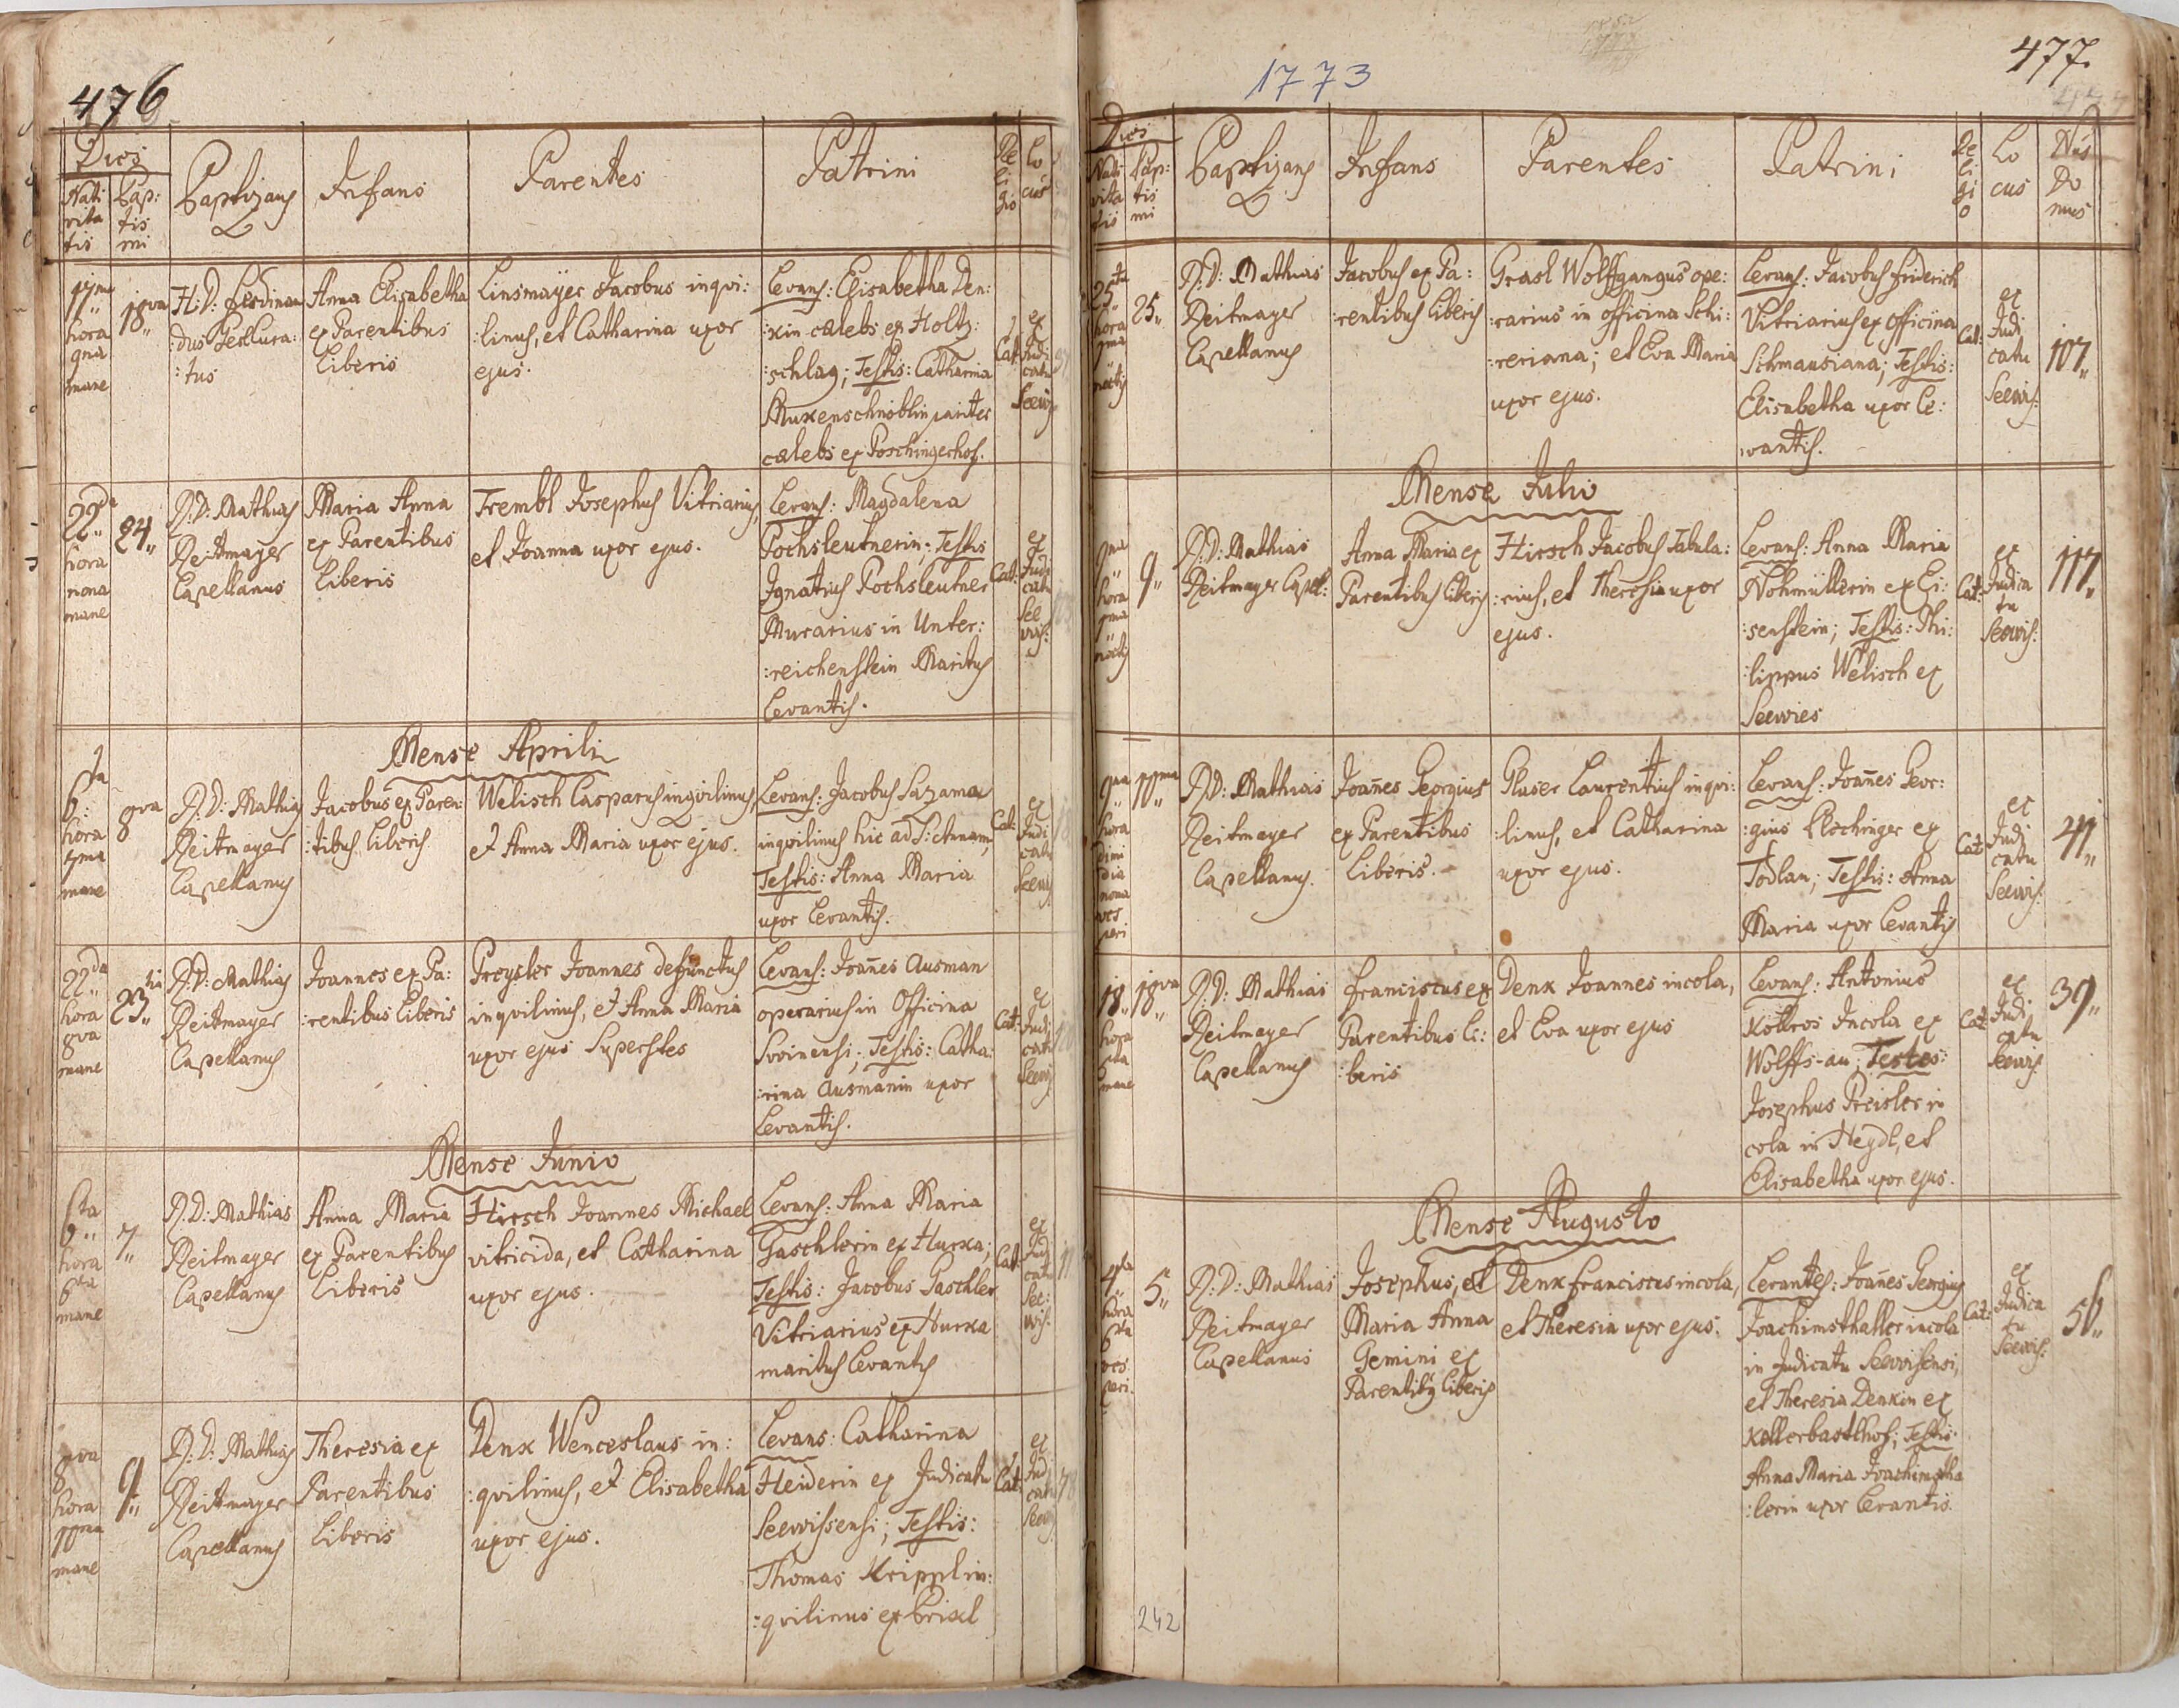 476
Dies
Nati
vita
tis
Bap:
tis
mi
Baptizans
Infans
Parentes
Patrini
Re
li
gio
Lo
cus
17ma
hora
9na
mane
18va
H: D: Ferdinan
:dus
:tus
Anna Elisabetha
ex Parentibus
Liberis
Linsmayer Jacobus inqvi:
:linus, et Catharina uxor
ejus.
Levans: Elisabetha Den:
:kin cælebs ex Holtz:
:schlag; Testis: Catharina
Muxenschnöblin pariter
cælebs ex Poschingerhof.
Cat:
ex
Judi
catu
Seewis
22da
hora
nona
mane
24.
P: D: Mathias
Reitmayer
Capellanus
Maria Anna
ex Parentibus
Liberis
Trembl Josephus Vitriarius,
et Joanna uxor ejus.
Levans: Magdalena
Pochsleutnerin; Testis
Ignatius Pochsleutner
Murarius in Unter:
:reichenstein Maritus
Levantis.
Cat:
ex
Judi
catu
See
wis:
Mense Aprili
6ta
hora
mane
8va
P: D: Mathias
Reitmayer
Capellanus
Jacobus ex Paren:
:tibus Liberis
Welisch Casparus inqvilinus,
et Anna Maria uxor ejus.
Levans: Jacobus Sazama
inqvilinus hic ad S: Annam,
Testis: Anna Maria
uxor Levantis.
Cat:
ex
Judi
catu
Seewis
22da
hora
8va
mane
23tia
P: D: Mathias
Reitmayer
Capellanus
Joannes ex Pa:
:rentibus Liberis
Preysler Joannes defunctus
inqvilinus, et Anna Maria
uxor ejus Superstes
Levans: Joañes Ausman
operarius in Officina
Svoinensi; Testis: Catha:
:rina Ausmanin uxor
Levantis.
Cat:
ex
Judi
catu
Seewis
Mense Junio
6ta
hora
6ta
mane
7.
P: D: Mathias
Reitmayer
Capellanus
Anna Maria
ex Parentibus
Liberis
Hirsch Joannes Michael
vitricida, et Catharina
uxor ejus.
Levans: Anna Maria
Gaschlerin ex Hurka;
Testis: Jacobus Gaschler
Vitriarius ex Hurka
maritus Levantis
Cat:
ex
Judi
catu
See:
wis:
8va
hora
10ma
mane
9.
P: D: Mathias
Reitmayer
Capellanus
Theresia ex
Parentibus
Liberis
Denk Wenceslaus in:
:qvilinus, et Elisabetha
uxor ejus.
Levans: Catharina
Heiderin ex Judicatu
Seewisensi; Testis:
Thomas Krippl in:
:qvilinus ex Brixl
Cat:
ex
Jud
catu
Seew
1773
477.
Dies
Nati
vita
tis
Bap:
tis
mi
Baptizans
Infans
Parentes
Patrini
Re
li
gi
o
Lo
cus
Nus
Do
mus
25ta
hora
noctis
25.
P: D: Mathias
Reitmayer
Capellanus
Jacobus ex Pa:
:rentibus Liberis
Grasl Wolffgangus ope:
:rarius in officina Schi:
:reriana; et Eva Maria
uxor ejus.
Levans: Jacobus Friderich
Vitriarius ex officina
Schmausiana; Testis:
Elisabetha uxor Le:
:vantis.
Cat:
ex
Judi
catu
Seewis:
107.
Mense Julio
hora
noctis
9.
P: D: Mathias
Reitmayer Capel:
Anna Maria ex
Parentibus Liberis
Hirsch Jacobus Tabula:
:rius, et Theresia uxor
ejus.
Levans: Anna Maria
Nohmüllerin ex Ei:
:senstein; Testis: Phi:
:lippus Welisch ex
Seewies
Cat:
ex
Judica
tu
Seewis:
117.
9na
hora
dimi
dia
nona
ves
peri
10ma
P: D: Mathias
Reitmayer
Capellanus.
Joañes Georgius
ex Parentibus
Liberis.
Glaser Laurentius inqvi:
:linus, et Catharina
uxor ejus.
Levans: Joañes Geor:
:gius Plschinger ex
Todlau; Testis: Anna
Maria uxor Levantis
Cat:
ex
Judi
catu
Seewis:
41.
18.
hora
mane
18va
P: D: Mathias
Reitmayer
Capellanus
Franciscus ex
Parentibus Li:
:beris
Denk Joannes incola,
et Eva uxor ejus
Levans: Antonius
Kollros Incola ex
Wolffs-au; Testes:
Josephus Preisler in
cola in Heydl, et
Elisabetha uxor ejus.
Cat:
ex
Judi
catu
Seewis
39.
Mense Augusto
4ta
hora
6ta
ves
peri.
5.
P: D: Mathias
Reitmayer
Capellanus
Josephus, et
Maria Anna
Gemini ex
Parentibus Liberis
Denk Franciscus incola,
et Theresia uxor ejus.
Levantes: Joañes Georgius
Joachimsthaller incola
in Judicatu Seewisensi,
et Theresia Denkin ex
Kollerbastlhof; Testis:
Anna Maria Joachimstha
:lerin uxor Levantis.
Cat:
ex
Judica
tu
Seewis:
56.
242